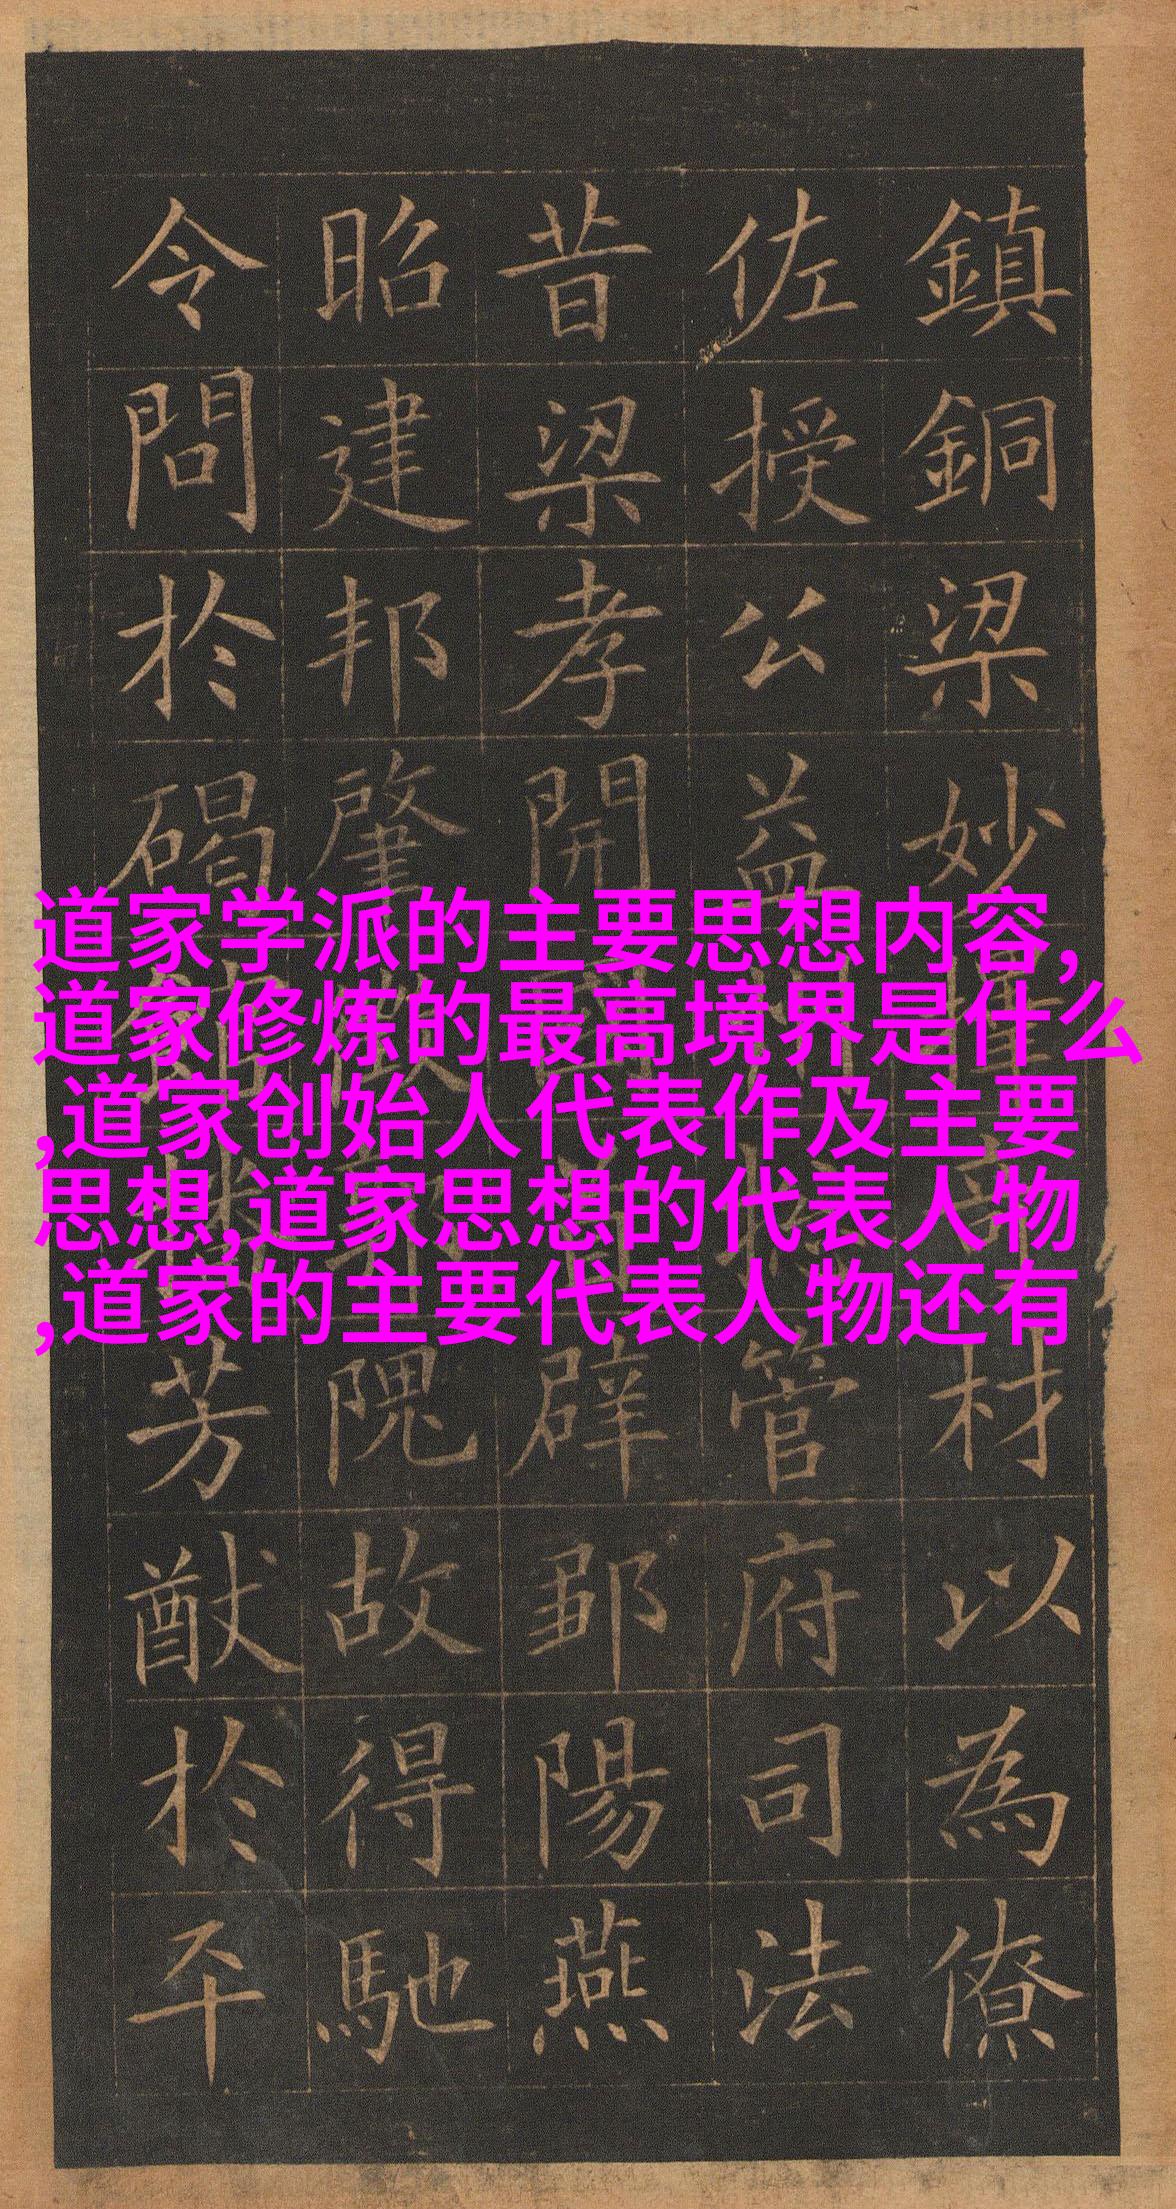 道家学派的主要思想内容,
道家修炼的最高境界是什么
,道家创始人代表作及主要
思想,道家思想的代表人物
,道家的主要代表人物还有
鎮銅梁妙材以為僚
佐授公益州管府司法
昔梁孝開辟鄒陽燕
昭建邦肇隗故得馳
令問於碣芳猷於平